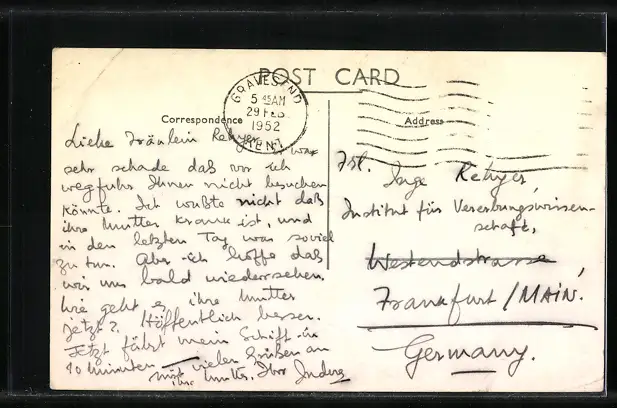 POST CARD
GRAVESEND
5 45AM
29 FEB
1952
KENT
Correspondence
Address
Liebe Fräulein Rehyer, es war
sehr schade daß vor ich
wegfuhr Ihnen nicht besuchen
könnte. Ich wußte nicht daß
ihre Mutter krank ist, und
in den letzten Tag war soviel
zu tun. Aber ich hoffe daß
wir uns bald wiedersehen.
Wie geht es ihre Mutter
jetzt? Höffentlich besser.
Jetzt fährt mein Schiff in
10 minuten – vielen Grüßen an
ihre Mutter. Ihr
Frl. Inge Rehyer,
Institut für Vererbungswissen-
schaft,
Westendstrasse,
Frankfurt / MAIN.
Germany.